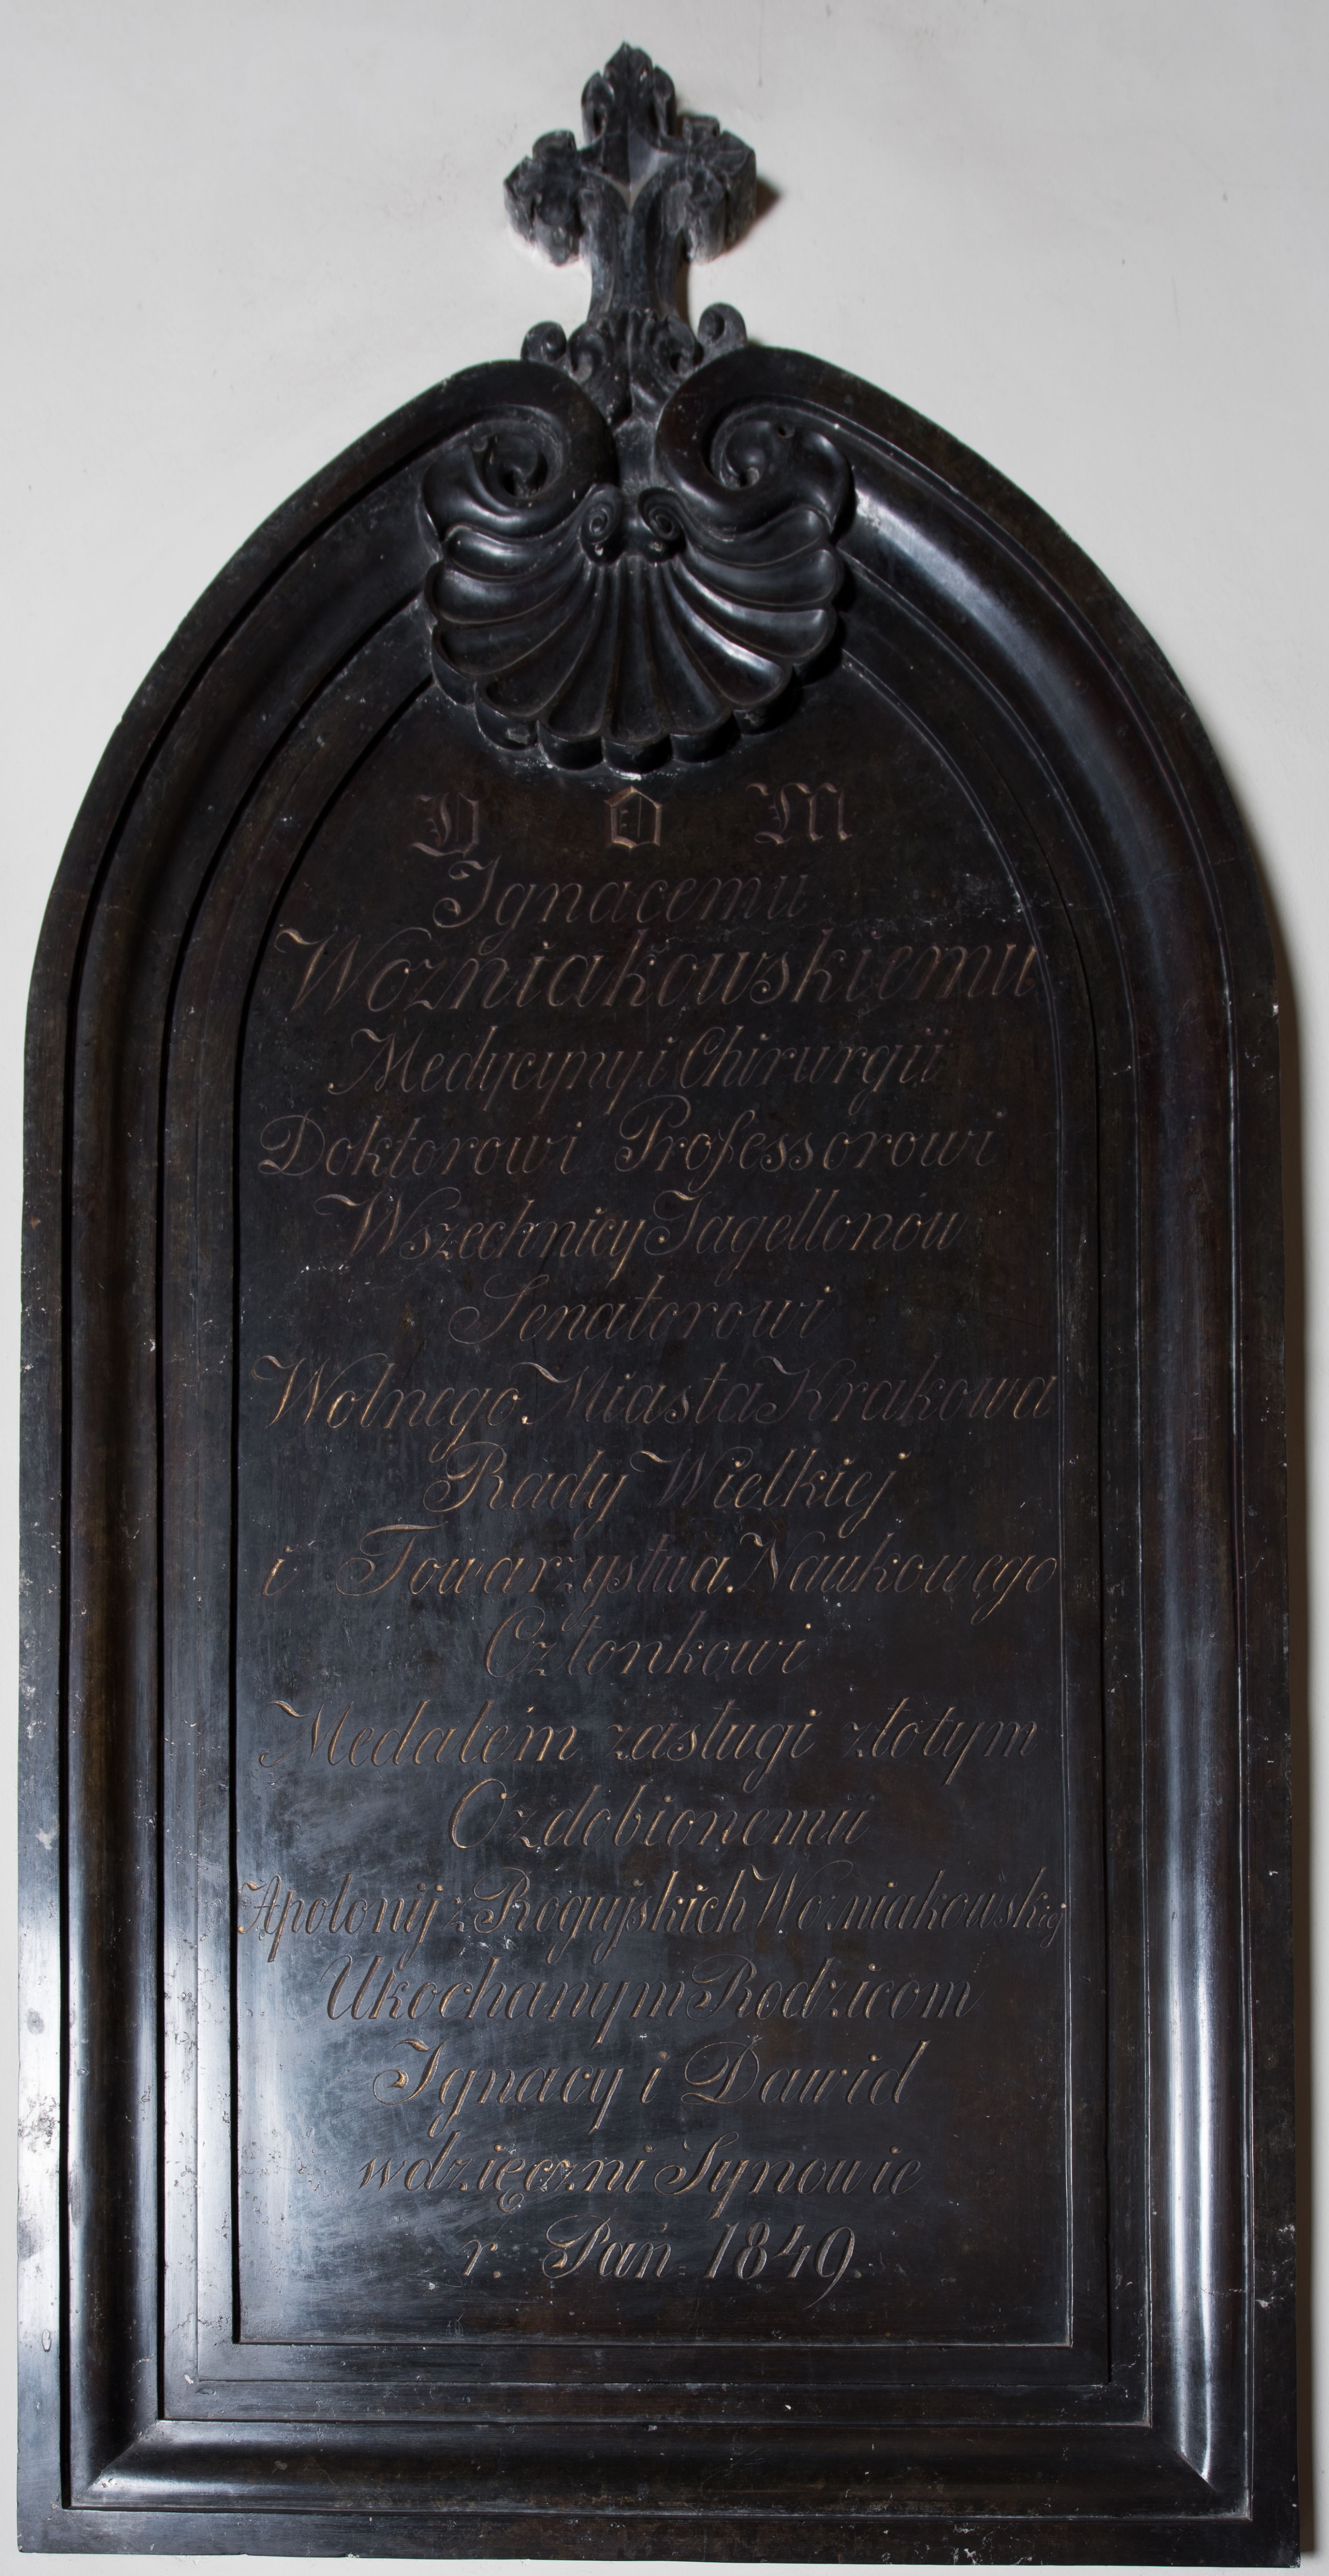 D O M
Ignacemu
Wozniakowskiemu
Medycyny i Chirurgii
Doktorowi Professorowi
Wszechnicy Jagellonów
Senatorowi
Wolnego Miasta Krakowa
Rady Wielkiej
i Towarzystwa Naukowego
Członkowi
Medalem zasługi złotym
Ozdobionemu
Apolonij z Rogujskich Wozniakowskiej
Ukochanym Rodzicom
Ignacy i Dawid
wdzięczni Synowie
r. Pań 1849.